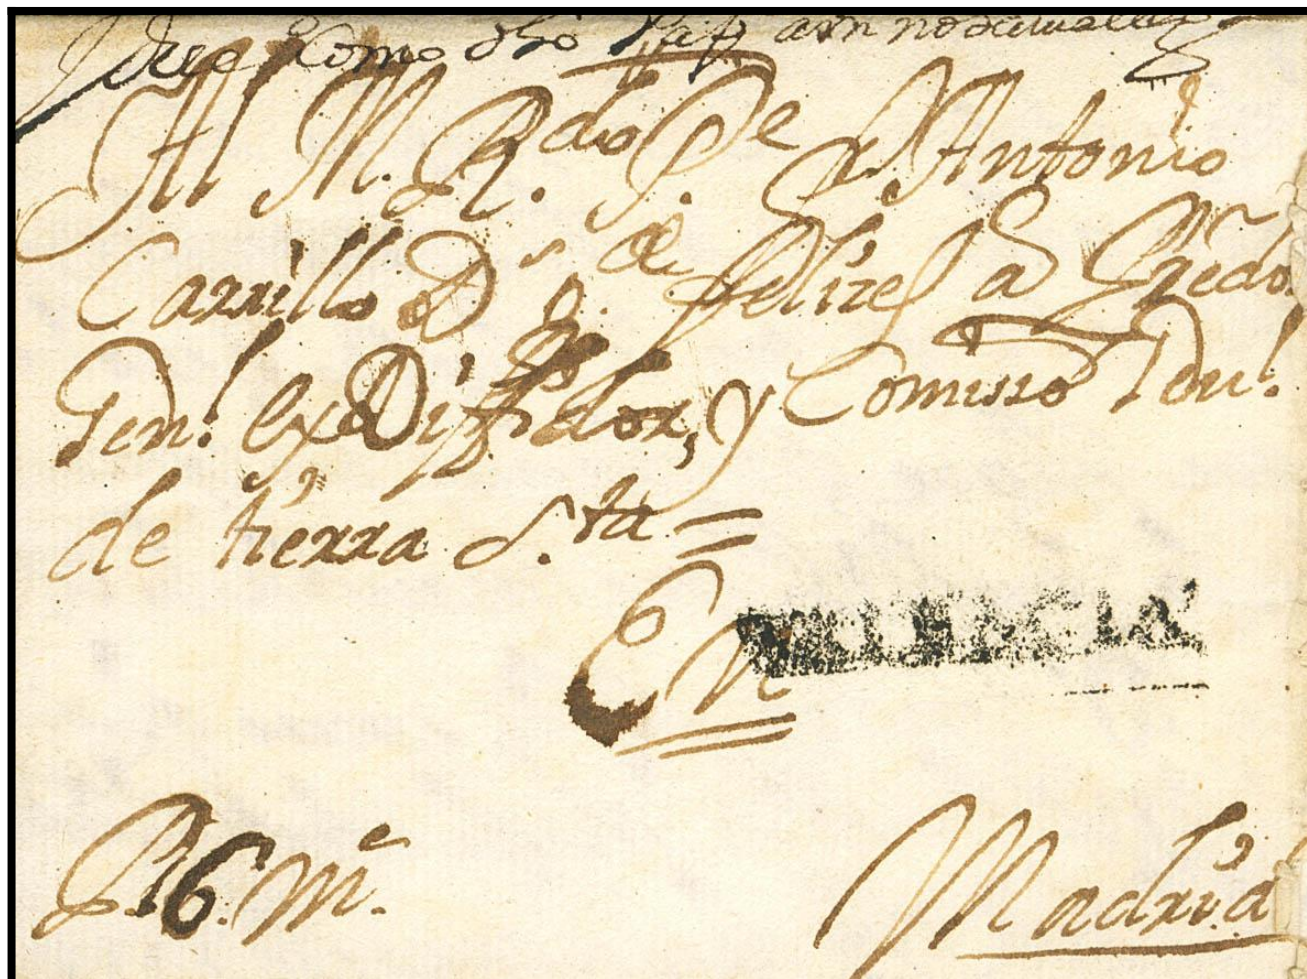 como dho
Al M. R.do P.e Fr. Antonio
Carrillo D.n de felizes a Predo.
Gen.l ex Diffidor, y Comisso Gen.l
de tierra S.ta =
En VALENCIA
P. 6 M.e Madrid